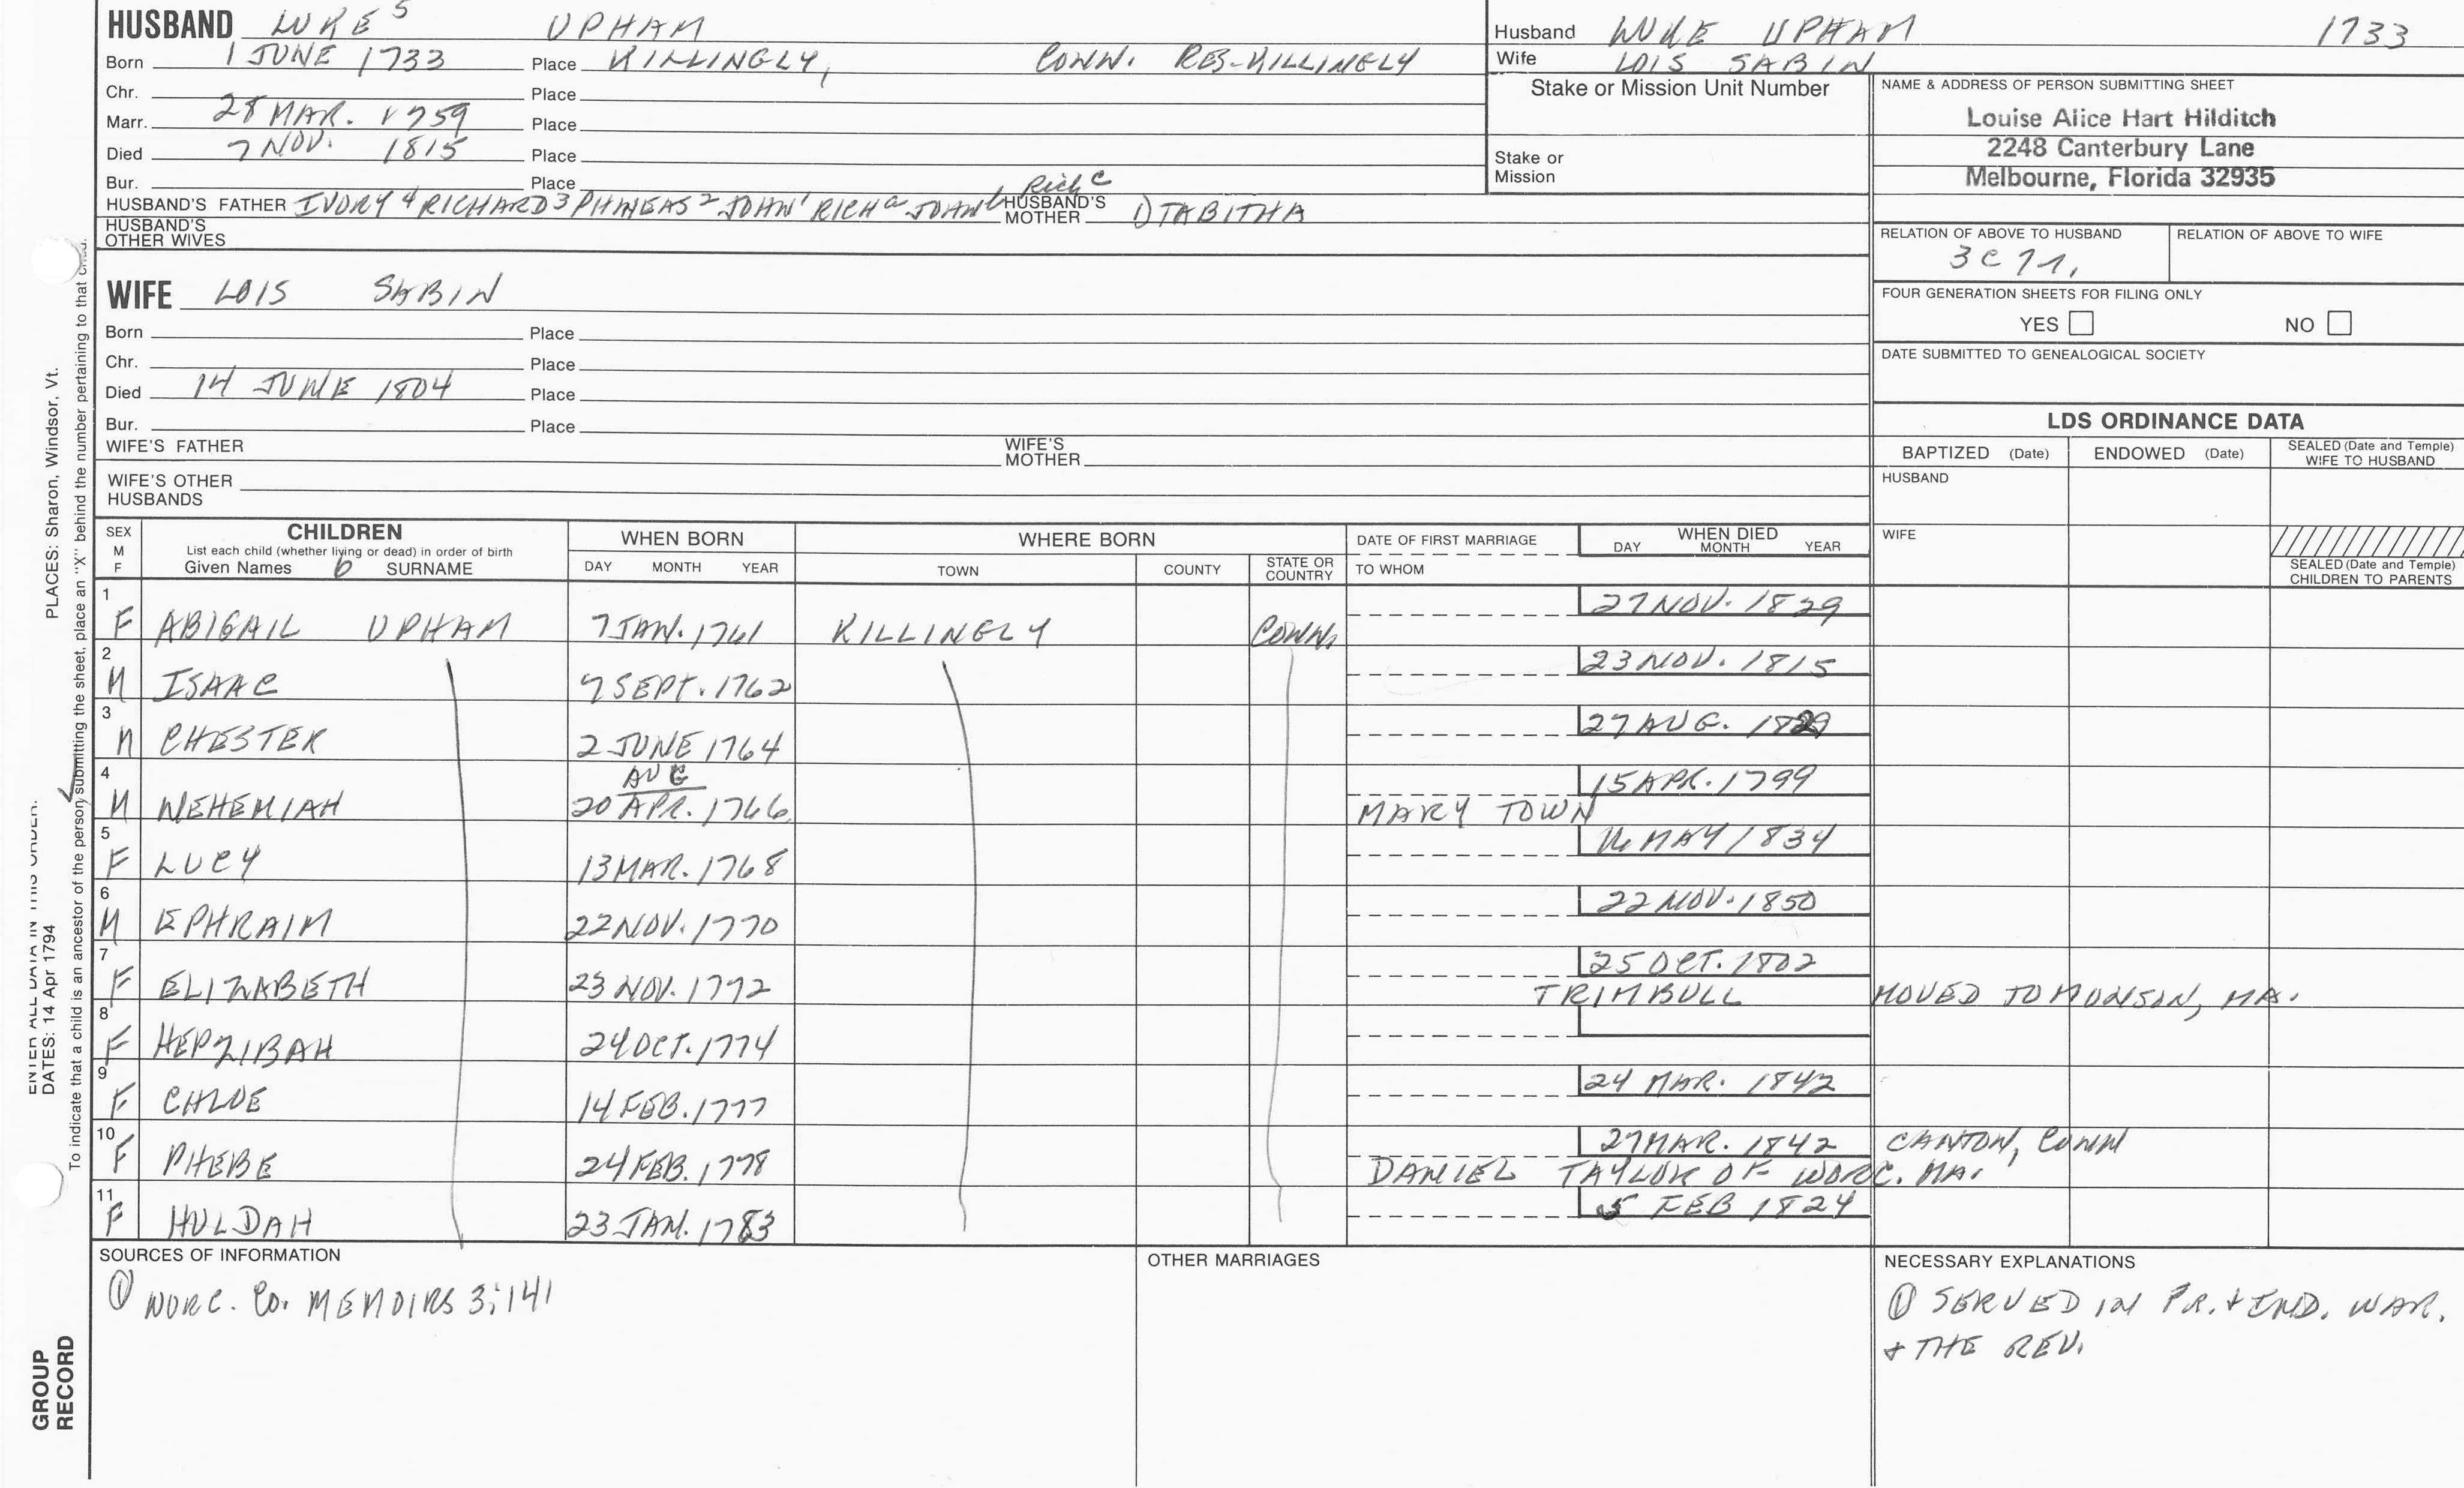 HUSBAND LUKE 5 UPHAM
Born 1 JUNE 1733 Place KILLINGLY, CONN. RES-KILLINGLY
Chr. Place
Marr. 28 MAR. 1759 Place
Died 7 NOV. 1815 Place
Bur. Place
HUSBAND'S FATHER IVORY 4 RICHARD 3 PHINEAS 2 JOHN 1 RICH a JOHN b Rich c HUSBAND'S MOTHER 1) TABITHA
HUSBAND'S OTHER WIVES
Husband LUKE UPHAM 1733
Wife LOIS SABIN
Stake or Mission Unit Number
Stake or Mission
NAME & ADDRESS OF PERSON SUBMITTING SHEET
Louise Alice Hart Hilditch
2248 Canterbury Lane
Melbourne, Florida 32935
RELATION OF ABOVE TO HUSBAND RELATION OF ABOVE TO WIFE
FOUR GENERATION SHEETS FOR FILING ONLY
YES NO
DATE SUBMITTED TO GENEALOGICAL SOCIETY
WIFE LOIS SABIN
Born Place
Chr. Place
Died 14 JUNE 1804 Place
Bur. Place
WIFE'S FATHER WIFE'S MOTHER
WIFE'S OTHER HUSBANDS
LDS ORDINANCE DATA
BAPTIZED (Date) ENDOWED (Date) SEALED (Date and Temple) WIFE TO HUSBAND
HUSBAND
WIFE
SEALED (Date and Temple) CHILDREN TO PARENTS
SEX M F
CHILDREN
List each child (whether living or dead) in order of birth
Given Names 6 SURNAME
WHEN BORN
DAY MONTH YEAR
WHERE BORN
TOWN COUNTY STATE OR COUNTRY
DATE OF FIRST MARRIAGE
TO WHOM
WHEN DIED
DAY MONTH YEAR
1 27 NOV. 1829
F ABIGAIL UPHAM 7 JAN. 1761 KILLINGLY CONN.
2 23 NOV. 1815
M ISAAC 7 SEPT. 1762
3 27 AUG. 1829
M CHESTER 2 JUNE 1764
4 AUG 15 APR. 1799
M NEHEMIAH 20 APR. 1766 MARY TOWN
5 16 MAY 1834
F LUCY 13 MAR. 1768
6 22 NOV. 1850
M EPHRAIM 22 NOV. 1770
7 25 OCT. 1802
F ELIZABETH 23 NOV. 1772 TRIMBULL MOVED TO MONSON, MA.
8
F HEPZIBAH 24 OCT. 1774
9 24 MAR. 1842
F CHLOE 14 FEB. 1777
10 27 MAR. 1842 CANTON, CONN
F PHEBE 24 FEB. 1778 DANIEL TAYLOR OF WORC. MA.
11 5 FEB 1824
F HULDAH 23 JAN. 1783
SOURCES OF INFORMATION
① WORC. CO. MEMOIRS 3:141
OTHER MARRIAGES
NECESSARY EXPLANATIONS
① SERVED IN FR. + IND. WAR.
+ THE REV.
ENTER ALL DATA IN THIS ORDER:
DATES: 14 Apr 1794 PLACES: Sharon, Windsor, Vt.
To indicate that a child is an ancestor of the person submitting the sheet, place an "X" behind the number pertaining to that child.
GROUP
RECORD